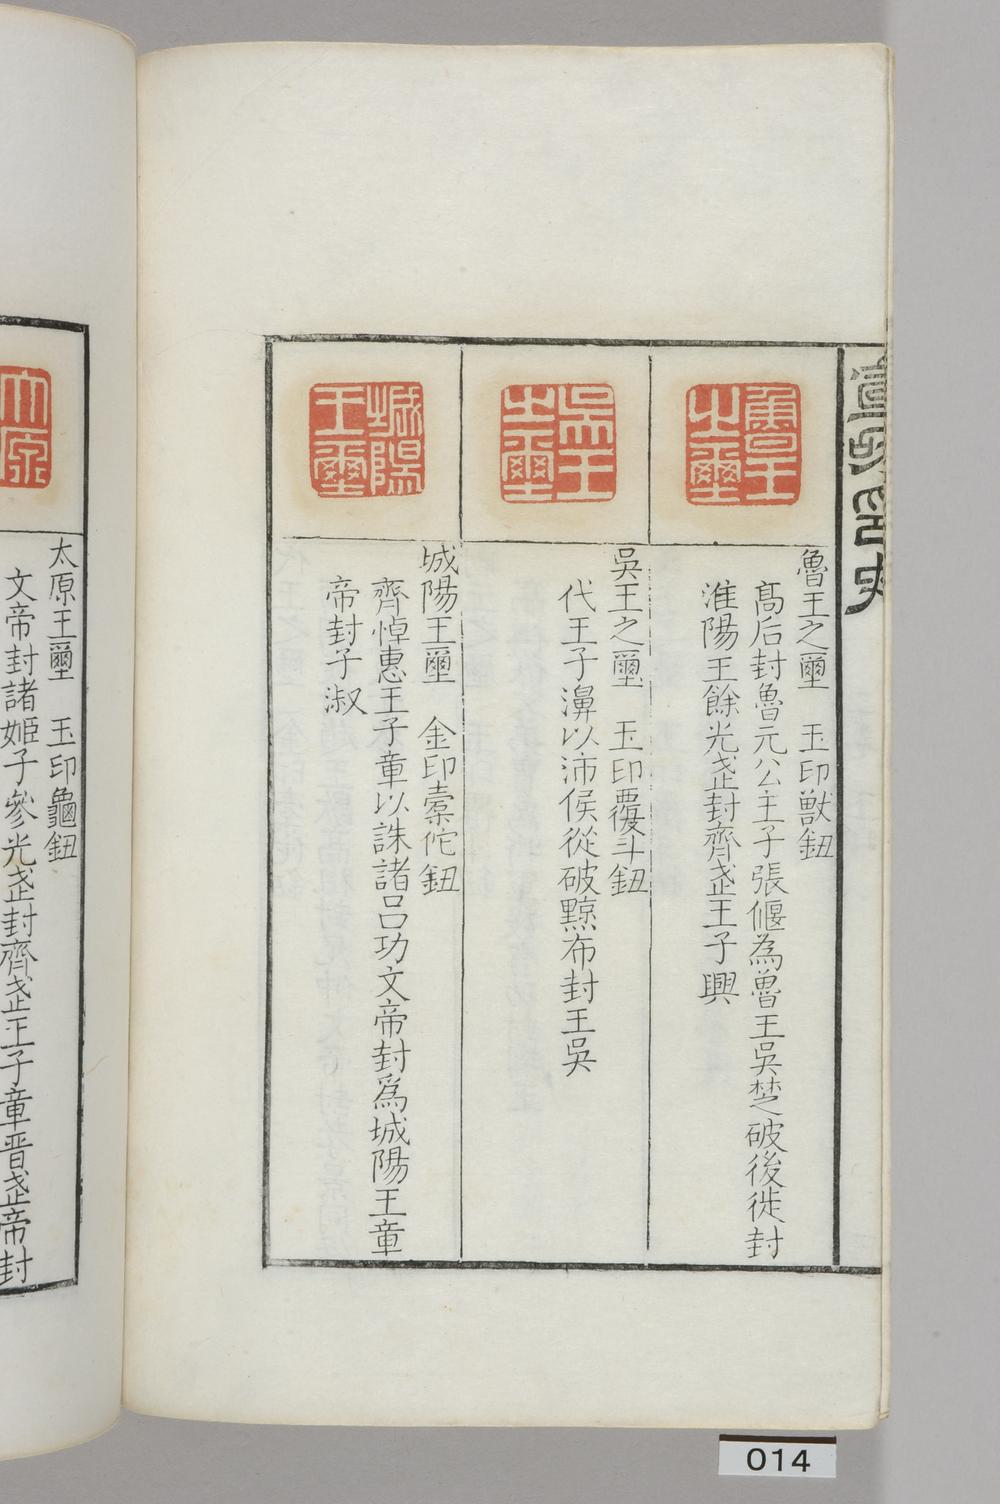 宣和印史
魯王
之璽
魯王之壐　玉印獸鈕
髙后封魯元公主子張偃為魯王吳楚破後徙封
淮陽王餘光武封齊武王子興
吳王
之璽
吳王之壐　玉印覆斗鈕
代王子濞以沛侯從破黥布封王吳
城陽
王璽
城陽王壐　金印橐佗鈕
齊悼惠王子章以誅諸呂功文帝封爲城陽王章
帝封子淑
太原
太原王壐　玉印龜鈕
文帝封諸姬子參光武封齊武王子章晋武帝封
014